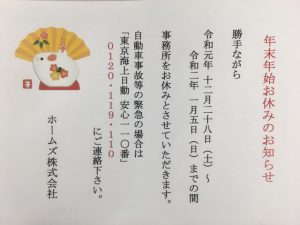 年末年始お休みのお知らせ
勝手ながら
令和元年 十二月二十八日（土）～
令和二年 一月五日（日）までの間
事務所をお休みとさせていただきます。
自動車事故等の緊急の場合は
「東京海上日動 安心一一〇番」
０１２０・１１９・１１０
にご連絡下さい。
ホームズ株式会社